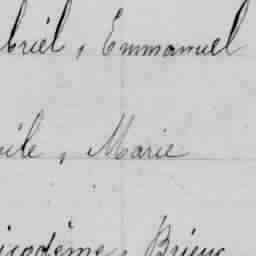 briel, Emmanuel
ile, Marie
icodème, Brieuc